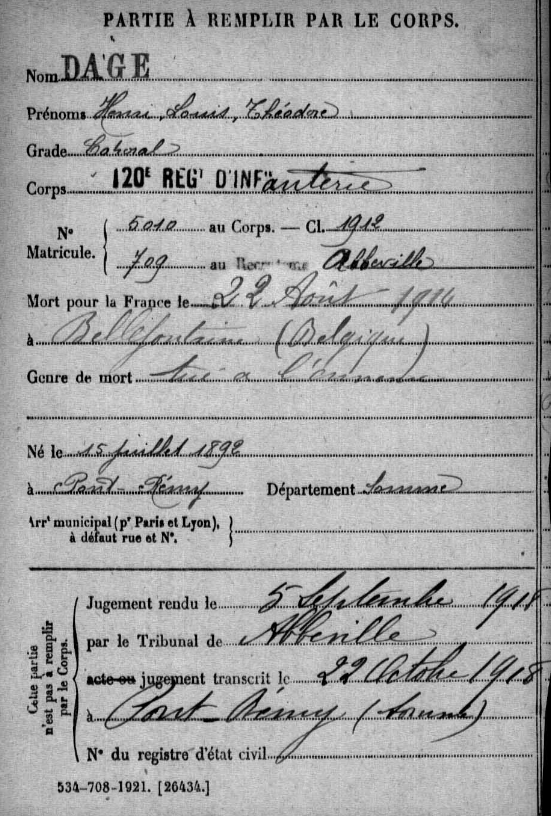 PARTIE À REMPLIR PAR LE CORPS.
Nom DAGE
Prénoms Henri, Louis, Théodore
Grade Caporal
Corps 120E REGt D'INFanterie
No Matricule. { 5010 au Corps. — Cl. 1912
709 au Recrutement Abbeville
Mort pour la France le 22 Août 1914
à Bellefontaine (Belgique)
Genre de mort tué à l'ennemi
Né le 15 juillet 1892
à Pont-Rémy Département Somme
Arrt municipal (pr Paris et Lyon), }
à défaut rue et No.
Cette partie n'est pas à remplir par le Corps.
Jugement rendu le 5 Septembre 1918
par le Tribunal de Abbeville
acte ou jugement transcrit le 22 Octobre 1918
à Pont-Rémy (Somme)
No du registre d'état civil
534-708-1921. [26434.]